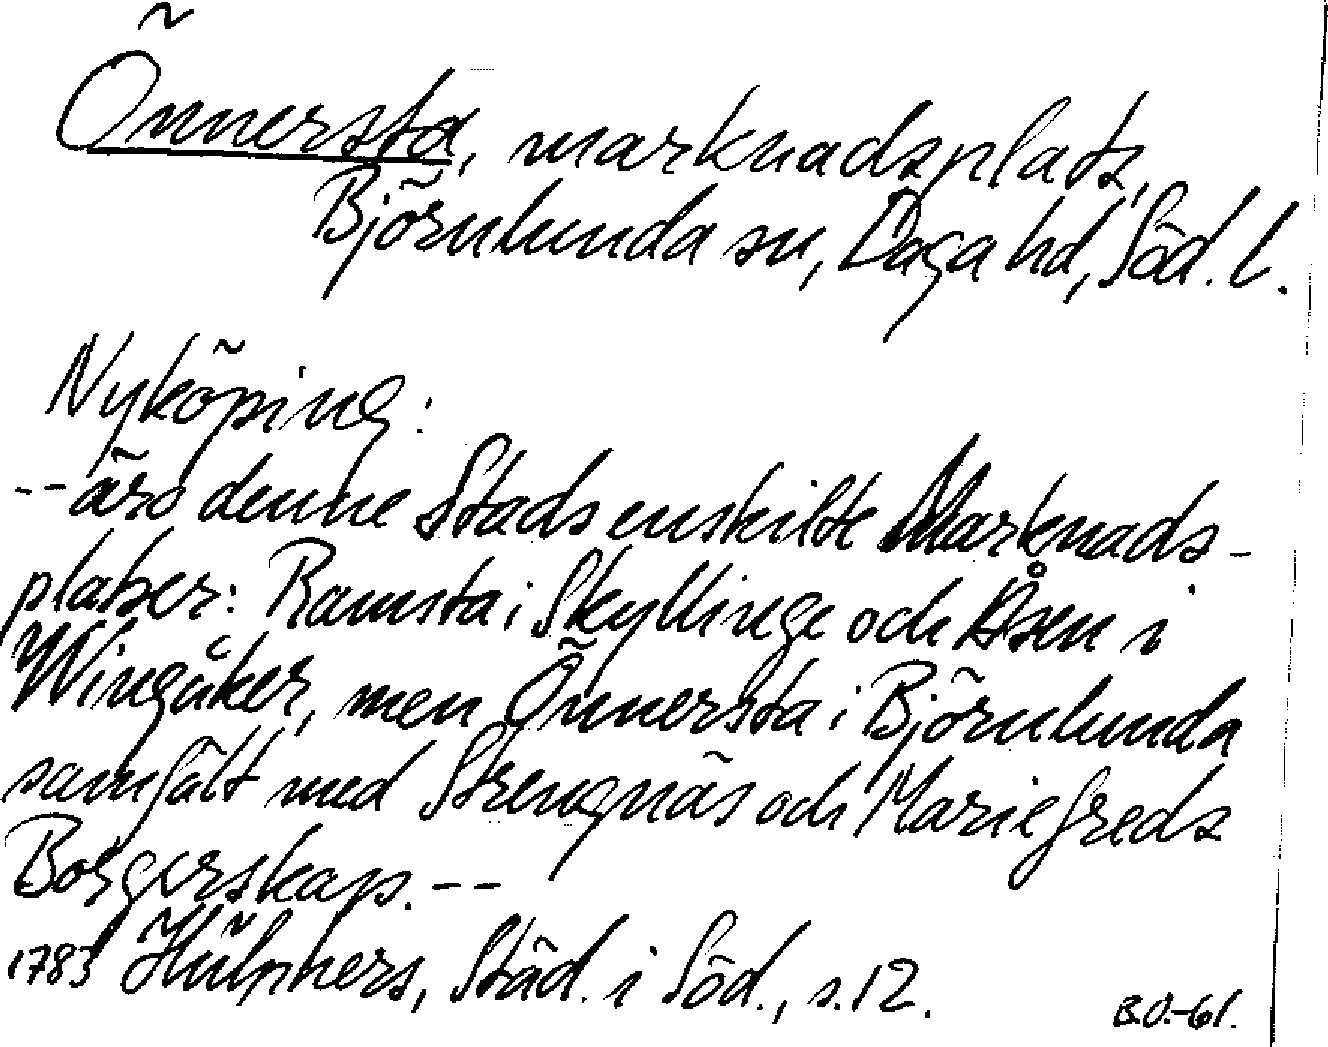 Önnersta, marknadsplats,
Björnlunda sn, Daga hd, Söd. l.
Nyköping:
-- äro denne Stads enskilte Marknads-
platser: Ramsta i Skyllinge och Åsen i
Wingåker, men Önnersta i Björnlunda
samfält med Strengnäs och Mariefreds
Borgerskap. --
1783 Hülphers, Städ. i Söd., s. 12.
B.O.-61.